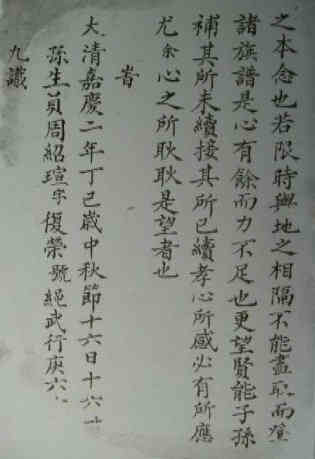 之本念也若限時與地之相隔不能盡取而登
諸族譜是心有餘而力不足也更望賢能子孫
補其所未續接其所已續孝心所感必有所應
尤余心之所耿耿是望者也
旹
大清嘉慶二年丁巳歲中秋節十六日十六
孫生員周紹瑄字復榮號繩武行庚六
九識